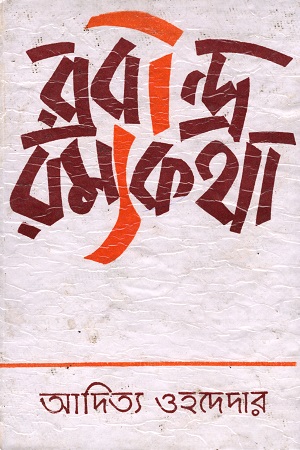 রবীন্দ্র
রম্যকথা
আদিত্য ওহদেদার